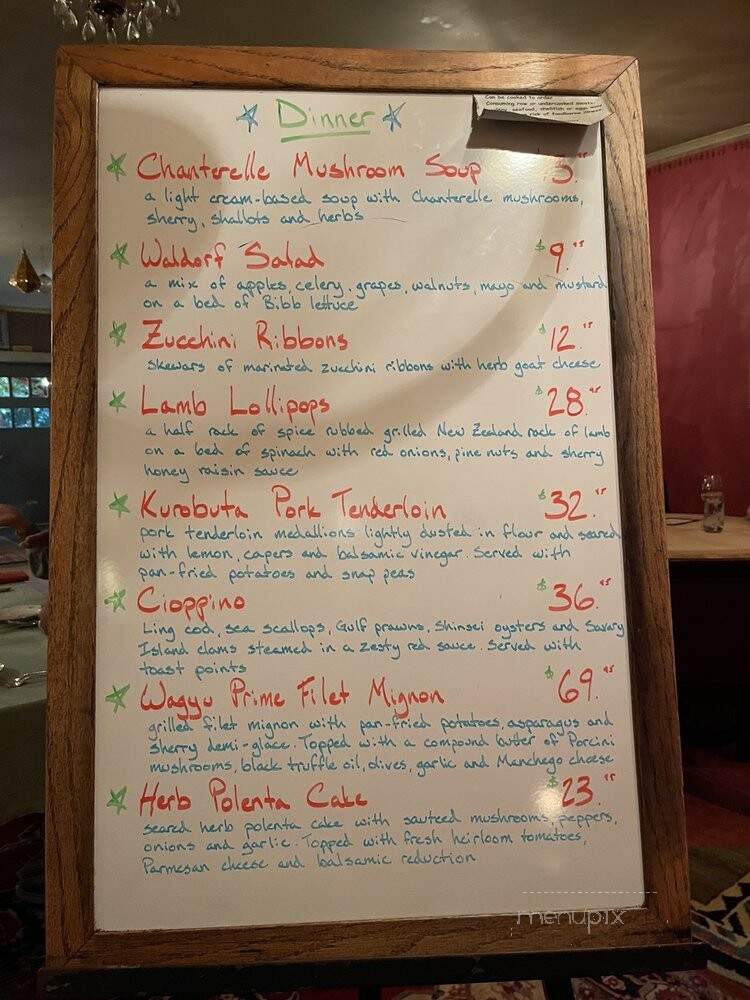 Can be cooked to order
Consuming raw or undercooked meats,
seafood, shellfish or eggs
risk of foodborne
Dinner
Chanterelle Mushroom Soup
a light cream-based soup with Chanterelle mushrooms,
sherry, shallots and herbs
Waldorf Salad $9.95
a mix of apples, celery, grapes, walnuts, mayo and mustard
on a bed of Bibb lettuce
Zucchini Ribbons $12.95
skewars of marinated zucchini ribbons with herb goat cheese
Lamb Lollipops $28.95
a half rack of spice rubbed grilled New Zealand rack of lamb
on a bed of spinach with red onions, pine nuts and sherry
honey raisin sauce
Kurobuta Pork Tenderloin $32.95
pork tenderloin medallions lightly dusted in flour and seared
with lemon, capers and balsamic vinegar. Served with
pan-fried potatoes and snap peas
Cioppino $36.95
Ling cod, sea scallops, Gulf prawns, Shinsei oysters and Savary
Island clams steamed in a zesty red sauce. Served with
toast points
Wagyu Prime Filet Mignon $69.95
grilled filet mignon with pan-fried potatoes, asparagus and
sherry demi-glace. Topped with a compound butter of Porcini
mushrooms, black truffle oil, olives, garlic and Manchego cheese
Herb Polenta Cake $23.95
seared herb polenta cake with sauteed mushrooms, peppers,
onions and garlic. Topped with fresh heirloom tomatoes,
Parmesan cheese and balsamic reduction
menupix